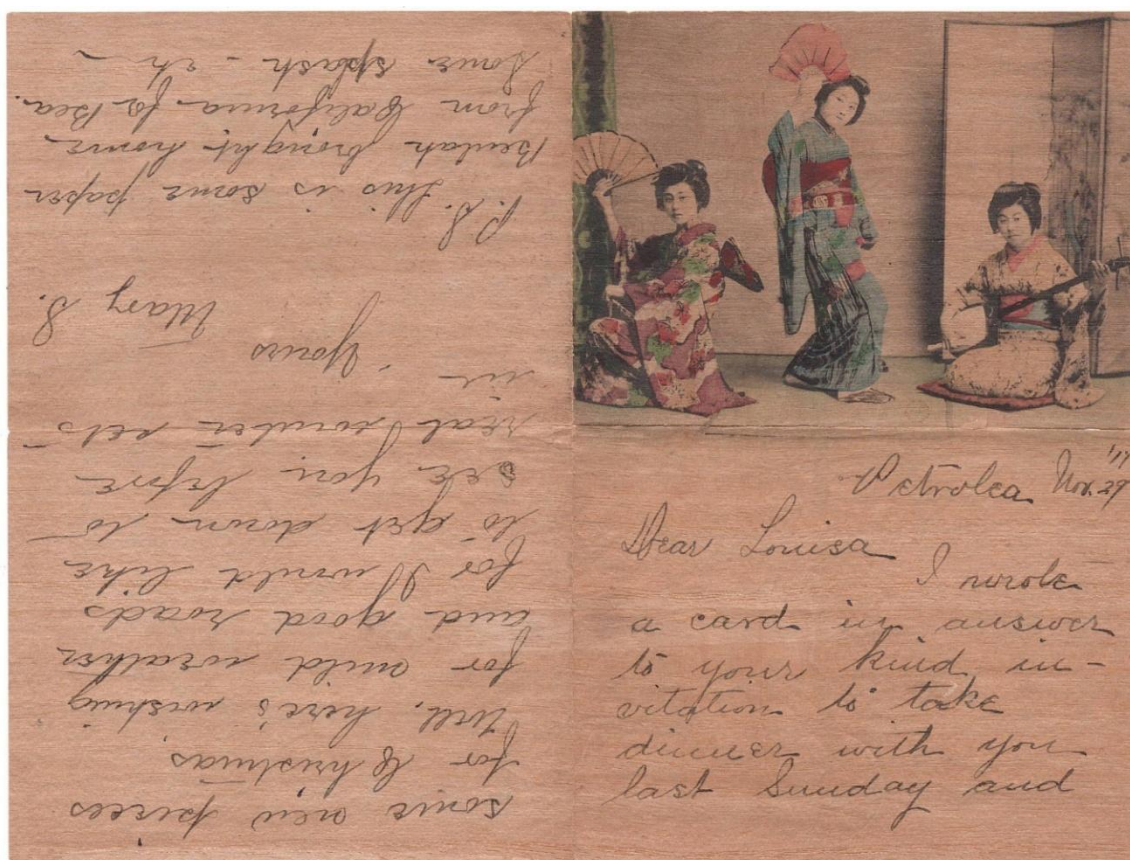 Petrolea Nov. 29 '17
Dear Louisa
I wrote
a card in answer
to your kind in-
vitation to take
dinner with you
last Sunday and
some new pieces
for Christmas
Well, here's wishing
for mild weather
and good roads
for I would like
to get down to
see you before
real winter sets
in
Yours
Mary S.
P.S. This is some paper
Beulah brought home
from California for Bea.
Some splash - eh -